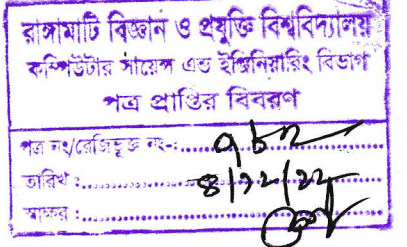 রাঙ্গামাটি বিজ্ঞান ও প্রযুক্তি বিশ্ববিদ্যালয়
কম্পিউটার সায়েন্স এন্ড ইঞ্জিনিয়ারিং বিভাগ
পত্র প্রাপ্তির বিবরণ
পত্র নং/রেজিভুক্ত নং-:
তারিখ :
স্বাক্ষর :